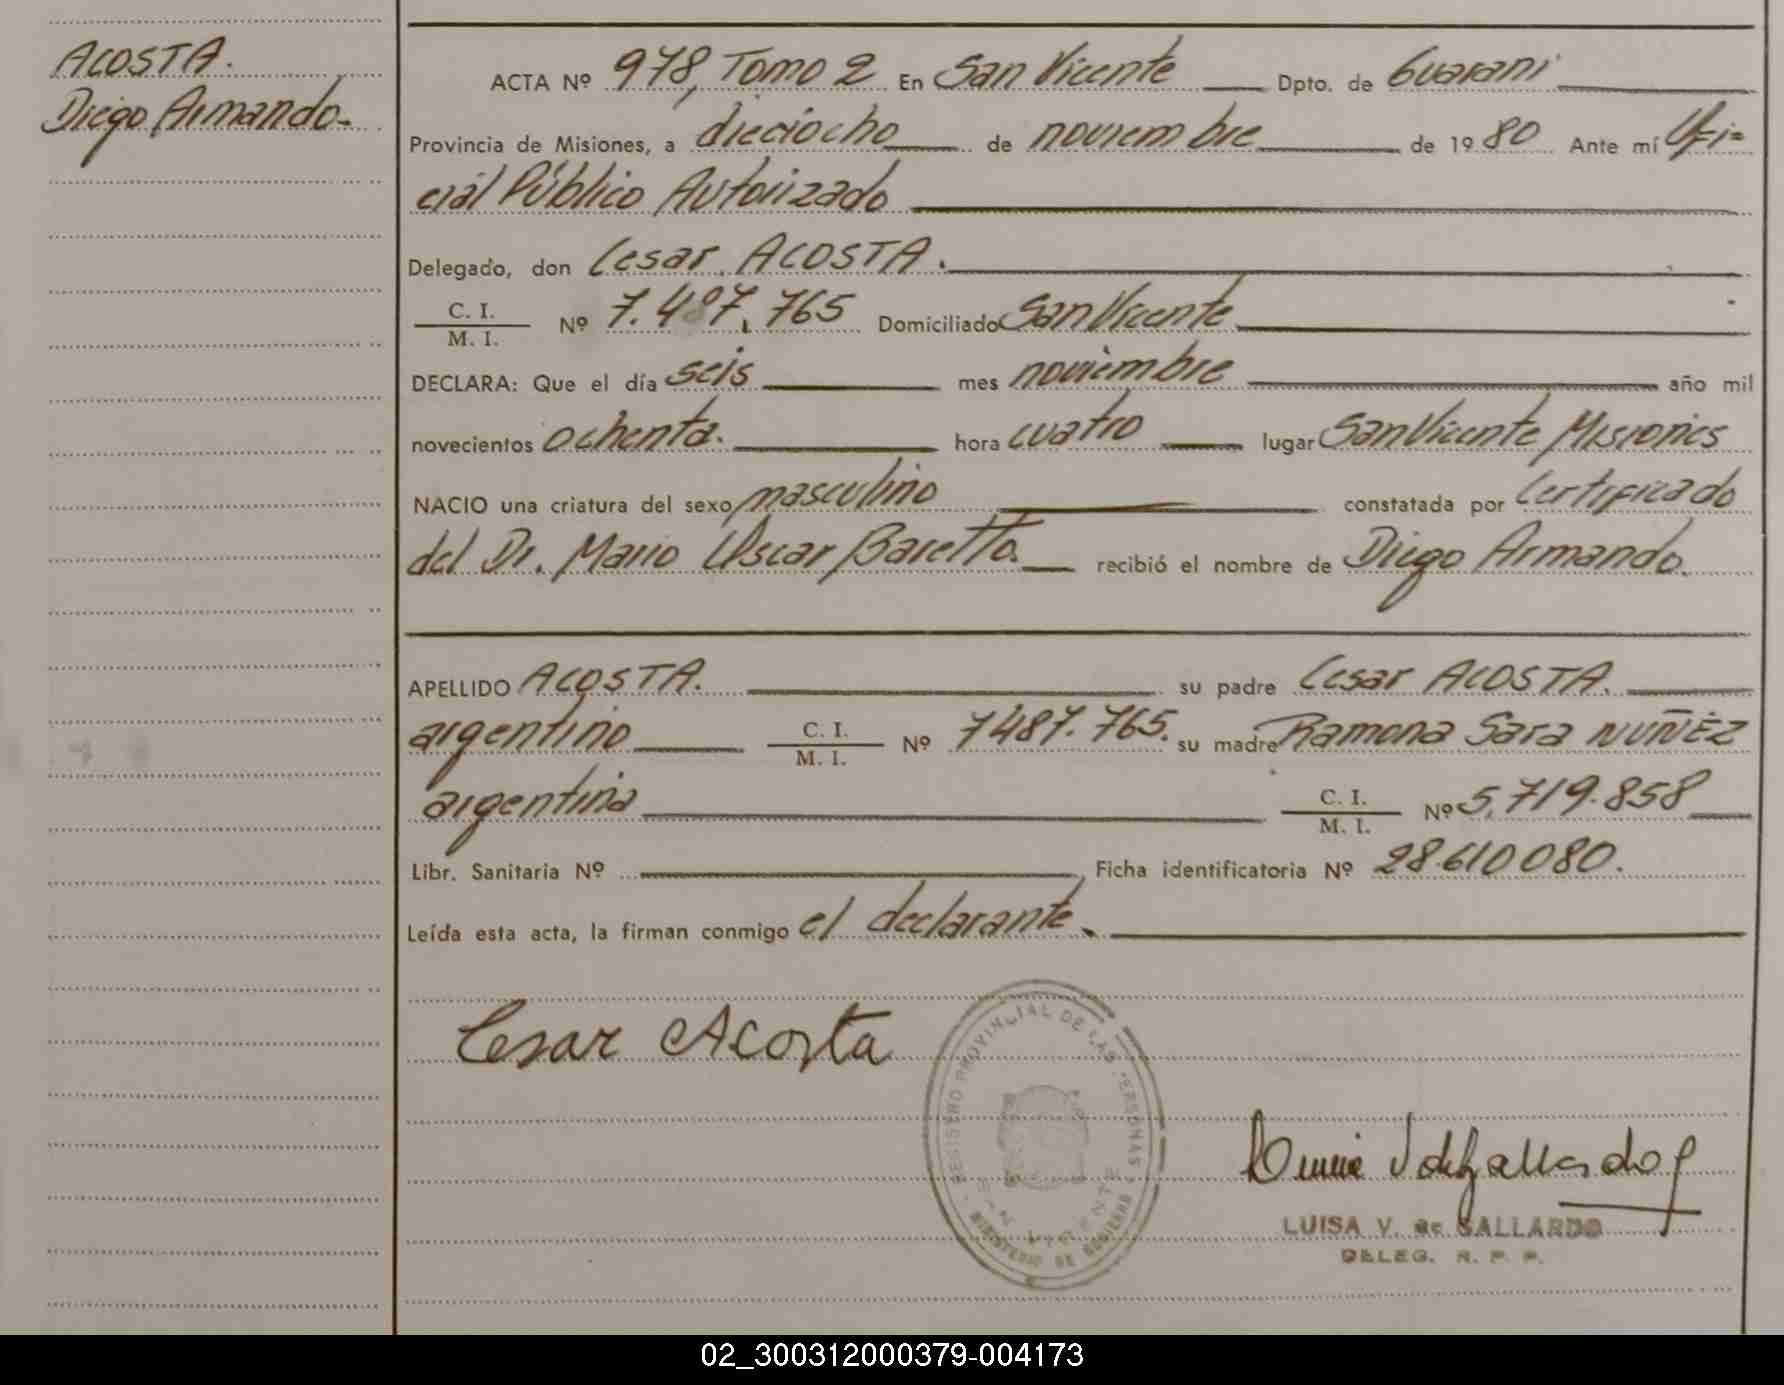 ACOSTA.
Diego Armando.
ACTA Nº 978, Tomo 2 En San Vicente Dpto. de Guarani
Provincia de Misiones, a dieciocho de noviembre de 1980 Ante mí Ofi=
cial Público Autorizado
Delegado, don Cesar ACOSTA.
C. I.
M. I.
Nº 7.487.765 Domiciliado San Vicente
DECLARA: Que el día seis mes noviembre año mil
novecientos ochenta. hora cuatro lugar San Vicente Misiones
NACIO una criatura del sexo masculino constatada por Certificado
del Dr. Mario Oscar Baretto. recibió el nombre de Diego Armando.
APELLIDO ACOSTA. su padre Cesar ACOSTA.
argentino C. I.
M. I.
Nº 7487.765. su madre Ramona Sara NUÑEZ
argentina C. I.
M. I.
Nº 5.719.858
Libr. Sanitaria Nº Ficha identificatoria Nº 28.610080.
Leída esta acta, la firman conmigo el declarante.
Cesar Acosta
REGISTRO PROVINCIAL DE LAS PERSONAS
SAN VICENTE
MINISTERIO DE GOBIERNO
LUISA V. de GALLARDO
DELEG. R. P. P.
02_300312000379-004173